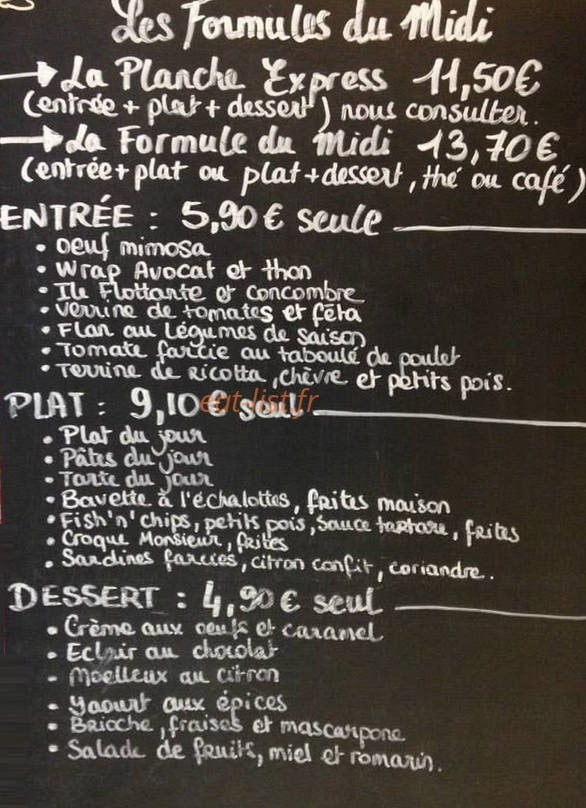 Les Formules du Midi
La Planche Express 11,50€
(entrée + plat + dessert) nous consulter.
La Formule du Midi 13,70€
(entrée+plat ou plat+dessert, thé ou café)
ENTRÉE : 5,90€ seule
• oeuf mimosa
• Wrap Avocat et thon
• Ile Flottante et Concombre
• Verrine de tomates et féta
• Flan au Légumes de saison
• Tomate farcie au taboulé de poulet
• Terrine de Ricotta, chèvre et petits pois.
PLAT : 9,10€ seul
eat-list.fr
• Plat du jour
• Pâtes du jour
• Tarte du jour
• Bavette à l'échalottes, frites maison
• Fish'n'chips, petits pois, sauce tartare, frites
• Croque Monsieur, frites
• Sardines farcies, citron confit, coriandre.
DESSERT : 4,90€ seul
• Crème aux oeufs et caramel
• Eclair au chocolat
• Moelleux au citron
• Yaourt aux épices
• Brioche, fraises et mascarpone
• Salade de fruits, miel et romarin.